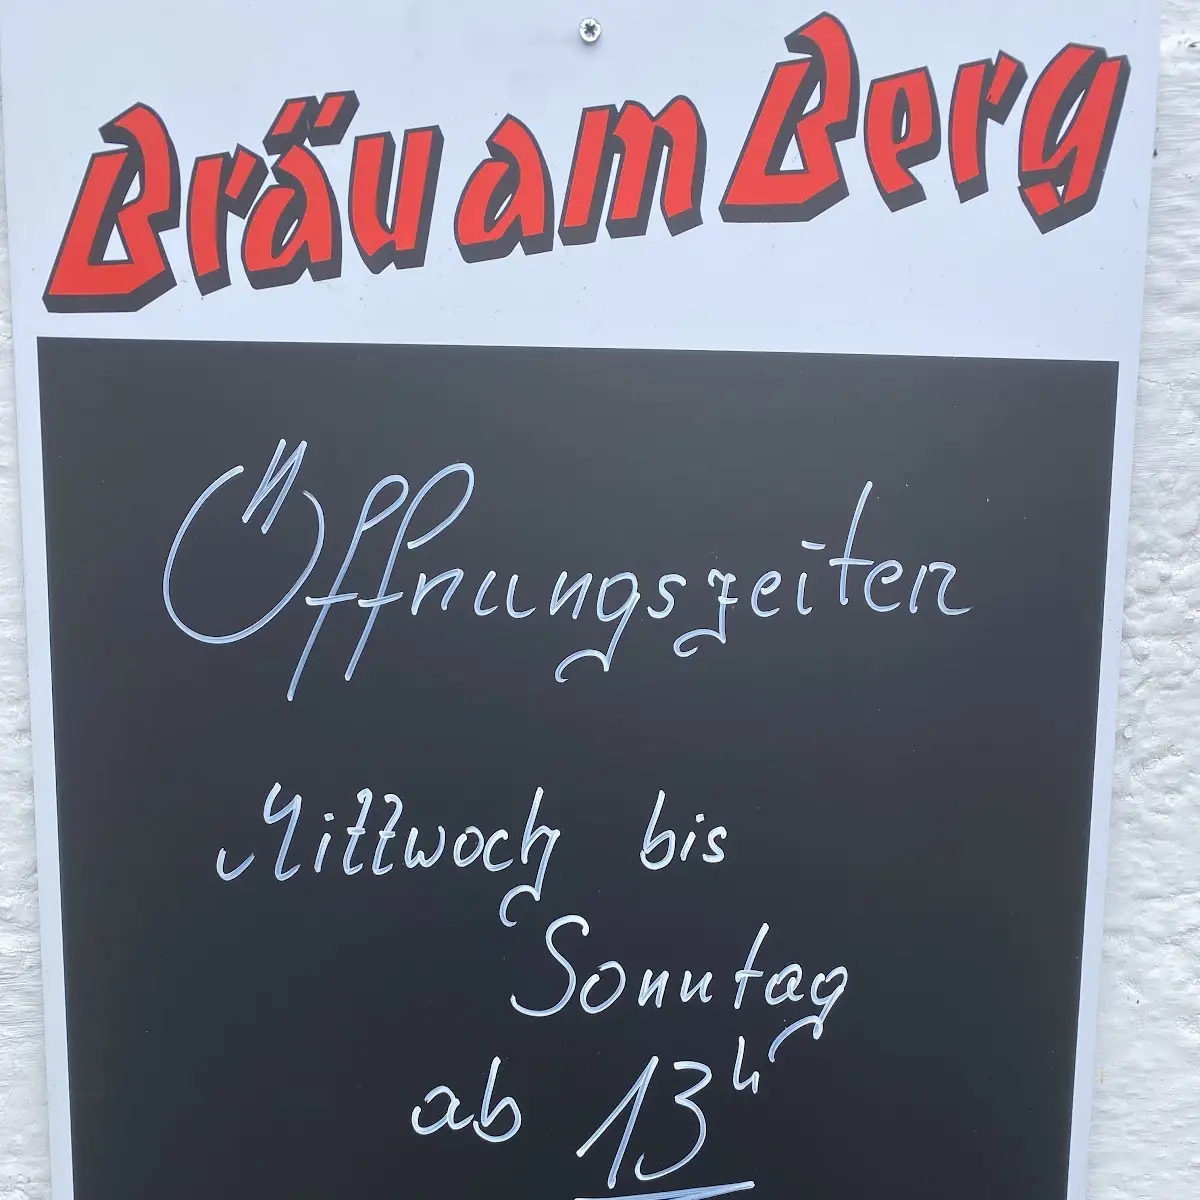 Bräu am Berg
Öffnungszeiten
Mittwoch bis
Sonntag
ab 13h